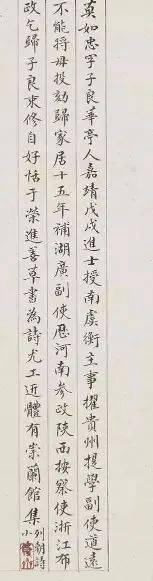 莫如忠字子良華亭人嘉靖戊戌進士授南虞衡主事擢貴州提學副使道遠
不能將母投劾歸家居十五年補湖廣副使歷河南參政陝西按察使浙江布
政乞歸子良束修自好恬于榮進善草書為詩尤工近體有崇蘭館集列朝詩
小傳